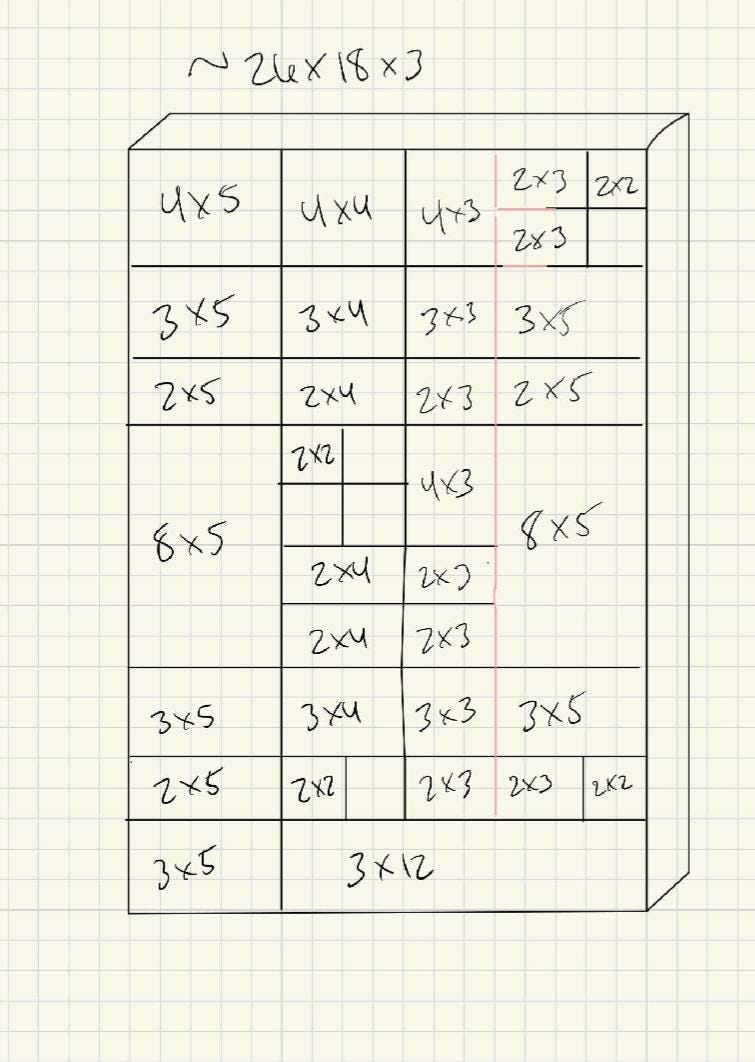 ~ 26x18x3
4x5 4x4 4x3 2x3 2x2
2x3
3x5 3x4 3x3 3x5
2x5 2x4 2x3 2x5
2x2
4x3
8x5 8x5
2x4 2x3
2x4 2x3
3x5 3x4 3x3 3x5
2x5 2x2 2x3 2x3 2x2
3x5 3x12